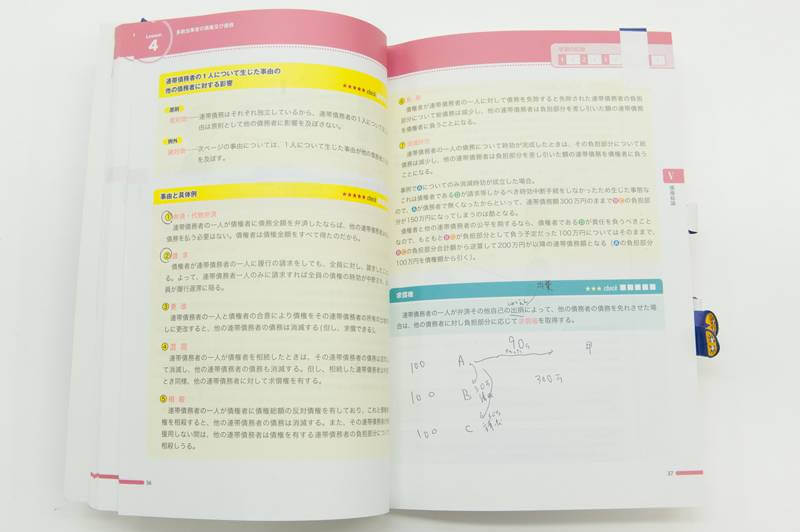 Lesson
4
多数当事者の債権及び債務
連帯債務者の1人について生じた事由の
他の債務者に対する影響
★★★★★ check
原則
連帯債務はそれぞれ独立しているから、連帯債務者の1人について生じ
由は原則として他の債務者に影響を及ぼさない。
例外
次ページの事由については、1人について生じた事由が他の債務者に
を及ぼす。
事由と具体例
★★★★★ check
①弁済・代物弁済
連帯債務者の一人が債権者に債務全額を弁済したならば、他の連帯債務者は
債務を払う必要はない。債権者は債権全額をすべて得たのだから。
②請求
債権者が連帯債務者の一人に履行の請求をしても、全員に対し、請求したことに
る。よって、連帯債務者一人のみに請求すれば全員の債権の時効が中断され、全
員が履行遅滞に陥る。
③更改
連帯債務者の一人と債権者の合意により債権をその連帯債務者の所有の
しに更改すると、他の連帯債務者の債務は消滅する(但し、求償できる)。
④混同
連帯債務者の一人が債権者を相続したときは、その連帯債務者の債務は混同
て消滅し、他の連帯債務者の債務も消滅する。但し、相続した連帯債務者は弁済
とき同様、他の連帯債務者に対して求償権を有する。
⑤相殺
連帯債務者の一人が債権者に債権総額の反対債権を有しており、これと債務
権を相殺すると、他の連帯債務者の債務は消滅する。また、その連帯債務者が
援用しない間は、他の連帯債務者は債権を有する連帯債務者の負担部分について
相殺しうる。
36
⑥免除
債権者が連帯債務者の一人に対して債務を免除すると免除された連帯債務者の負担
部分について総債務は減少し、他の連帯債務者は負担部分を差し引いた額の連帯債務
を債権者に負うことになる。
⑦消滅時効
連帯債務者の一人の債務について時効が完成したときは、その負担部分について総
債務は減少し、他の連帯債務者は負担部分を差し引いた額の連帯債務を債権者に負う
ことになる。
事例でAについてのみ消滅時効が成立した場合。
これは債権者である が請求等しかるべき時効中断手続をしなかったため生じた事態な
ので、Aが債務者で無くなったからといって、連帯債務額300万円のままで の負担部
分が150万円になってしまうのは酷となる。
債権者と他の連帯債務者の公平を期するなら、債権者である が責任を負うべきこと
なので、もともと が負担部分として負う予定だった100万円についてはそのままで、
の負担部分合計額から逆算して200万が以降の連帯債務額となる(Aの負担部分
100万円を債権額から引く)。
V
権利関係
求償権
★★★ check
連帯債務者の一人が弁済その他自己の出捐によって、他の債務者の債務を免れさせた場
合は、他の債務者に対し負担部分に応じて求償権を取得する。
90万
100 A 甲
300万
100 B
100 C
37